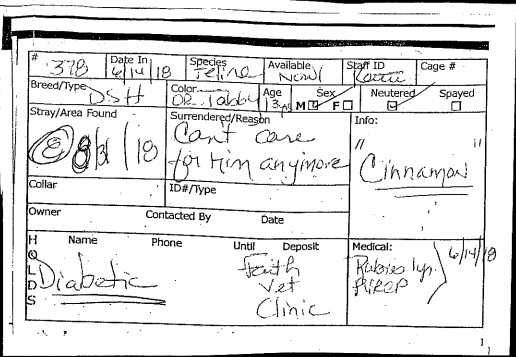 # 378
Date In 6/14/18
Species Feline
Available Now!
Staff ID
Cage #
Breed/Type DSH
Color Or. Tabby
Age 3 yrs
Sex
M F
Neutered Spayed
Stray/Area Found
8/3/18
Surrendered/Reason
Can't care
for Him anymore
Info:
" "
Cinnamon
Collar
ID#/Type
Owner Contacted By Date
HOLDS
Name Phone Until Deposit
Diabetic
Faith
Vet
Clinic
Medical:
Rabies 1yr.
FVRCP
6/14/18